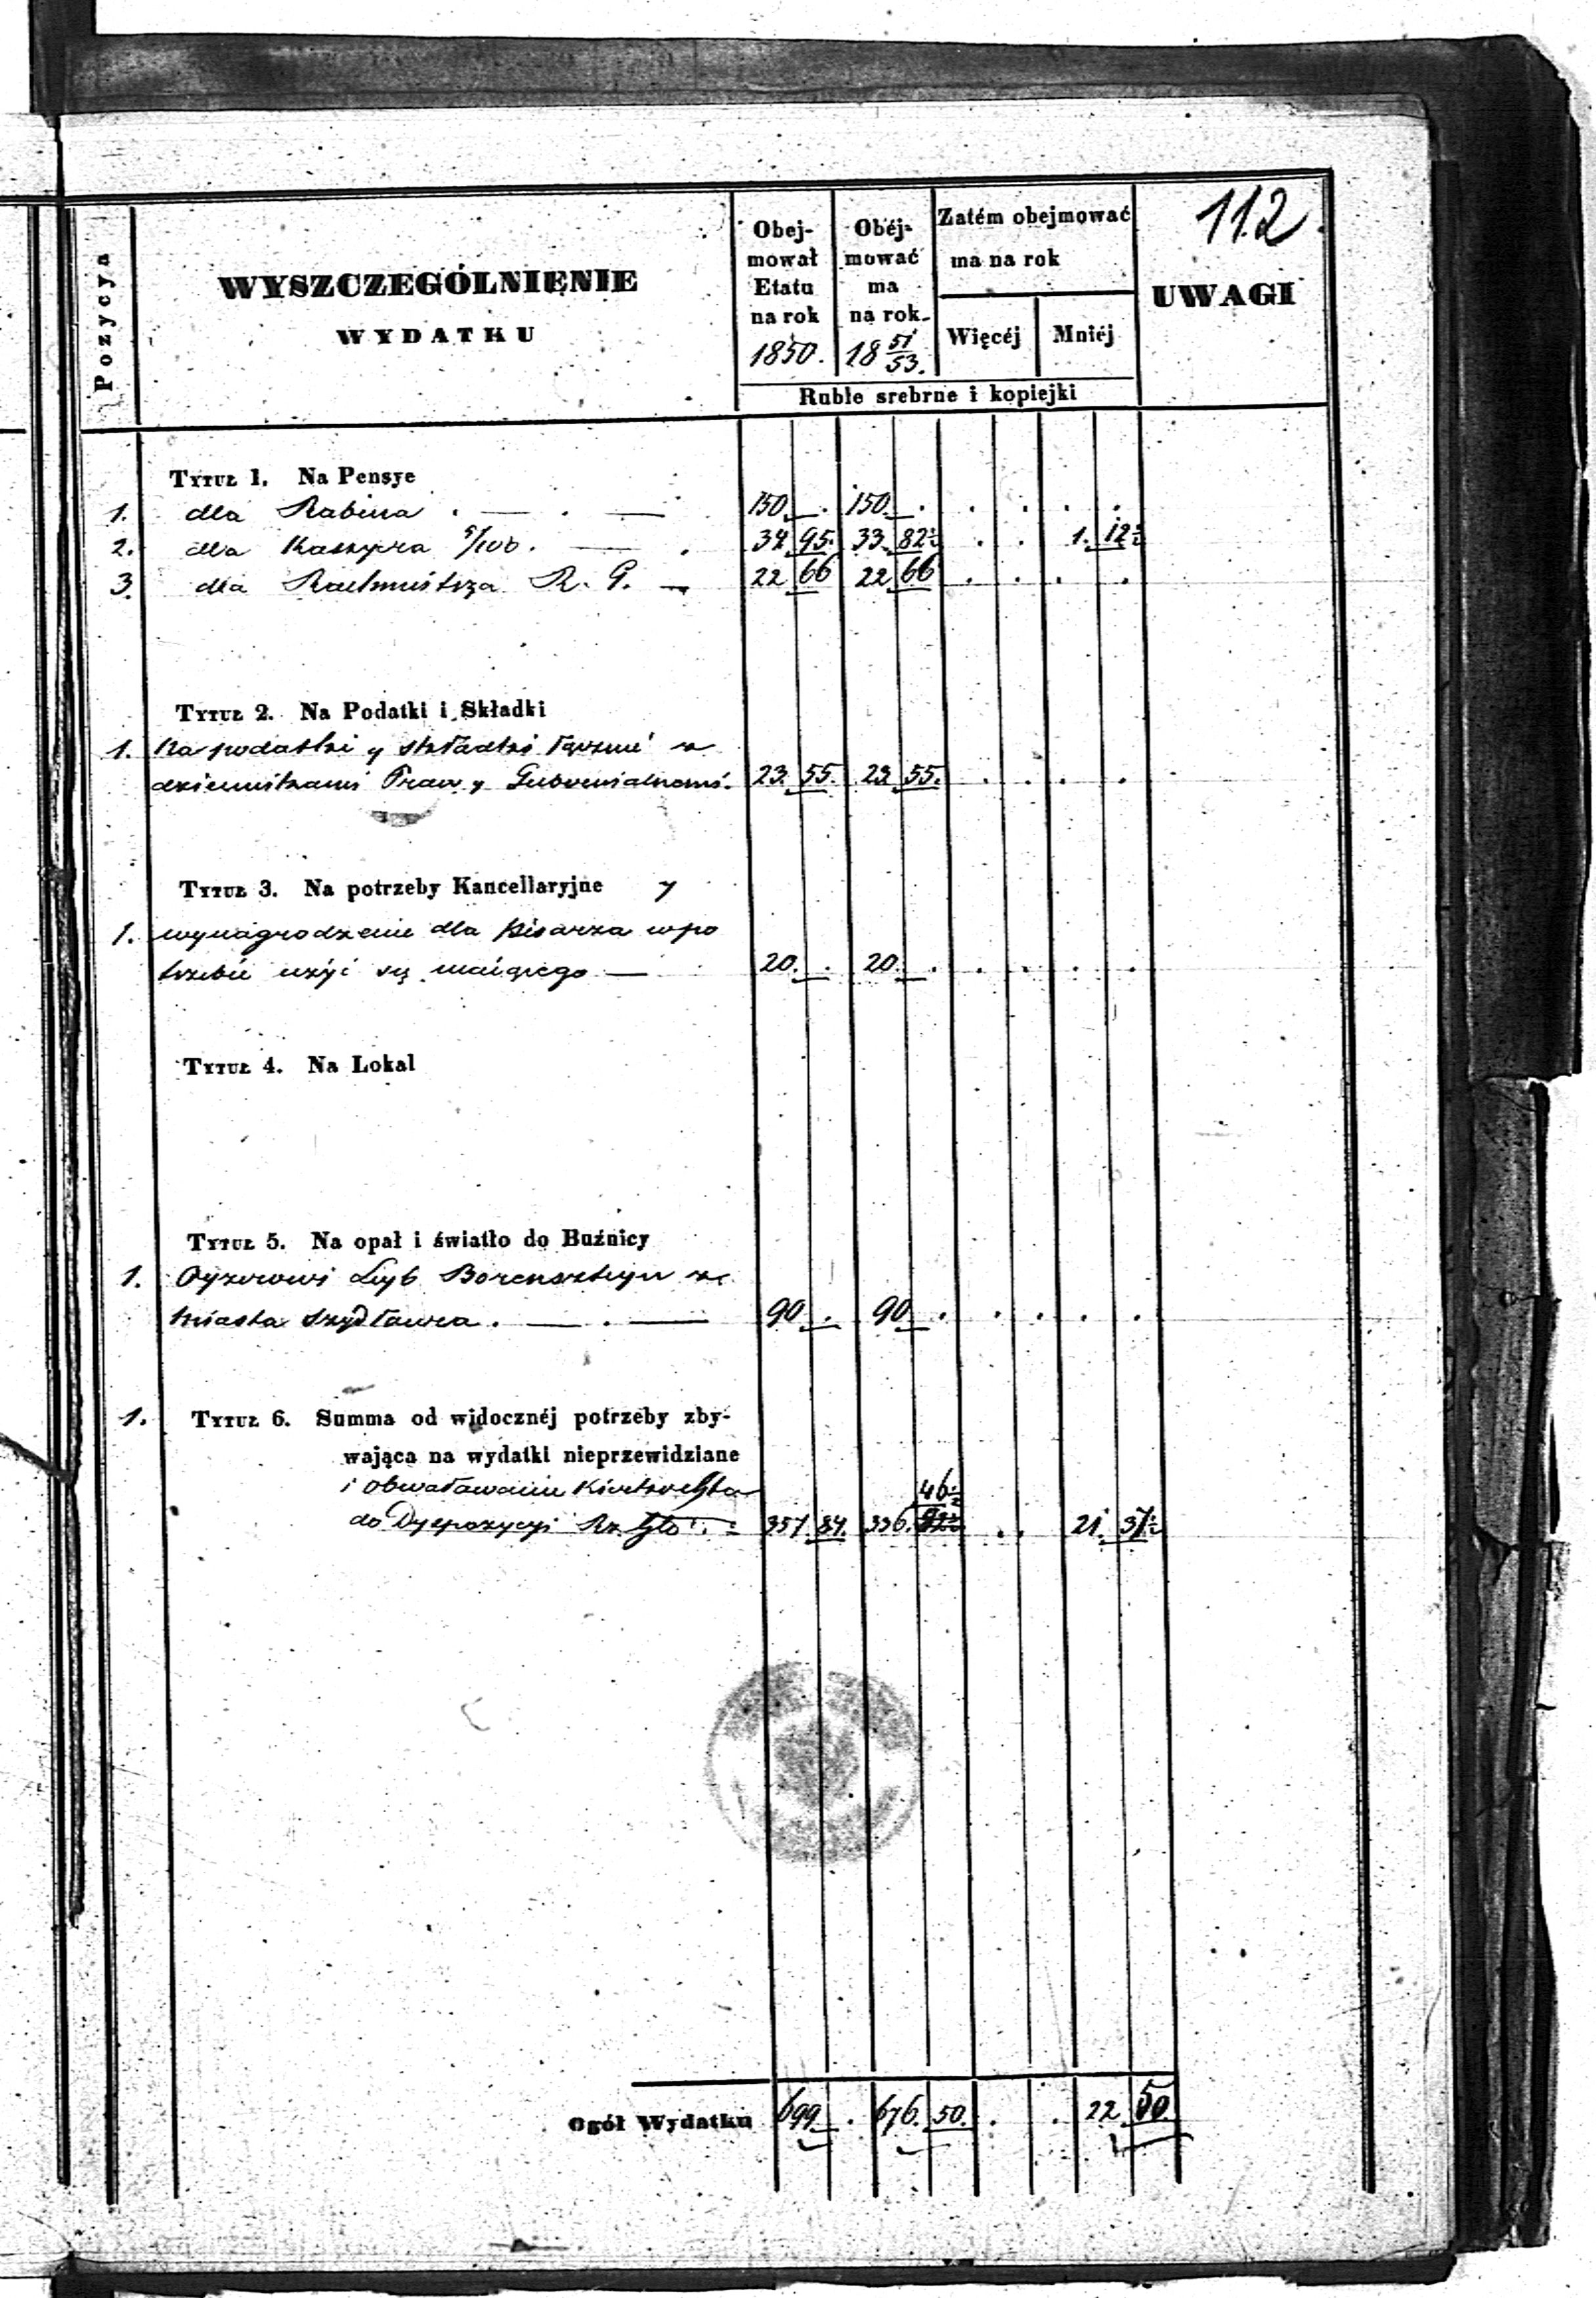 112.
Pozycya
WYSZCZEGÓLNIENIE
WYDATKU
Obej-
mował
Etatu
na rok
1850.
Obéj-
mować
ma
na rok
18 51/53.
Zatém obejmować
ma na rok
Więcéj
Mniéj
UWAGI
Ruble srebrne i kopiejki
Tytuł 1. Na Pensye
1. dla Rabina . — . — 150 . 150 . . . . .
2. dla Kassyera 5/100 . — . 34 95. 33. 82½ . . 1. 12½
3. dla Rachmistrza R. G. — 22 66 22 66 . . . .
Tytuł 2. Na Podatki i Składki
1. Na podatki y składki łącznie z
dziennikami Praw y Gubernialnemi. 23. 55. 23 55. . . . .
Tytuł 3. Na potrzeby Kancellaryjne y
1. wynagrodzenie dla pisarza wpo
trzebie użyć się maiącego — 20. . 20. . . . . .
Tytuł 4. Na Lokal
Tytuł 5. Na opał i światło do Buźnicy
1. Oyzerowi Leyb Borenszteyn z
miasta Szydłowca . — . — 90 . 90 . . . . .
1. Tytuł 6. Summa od widocznéj potrzeby zby-
wająca na wydatki nieprzewidziane
i obwałowanie Kirkowka
46½
do Dyspozycyi Rz. Gło 357. 84. 336. . . 21. 37½
Ogół Wydatku 699 . 676. 50. . . 22 50.